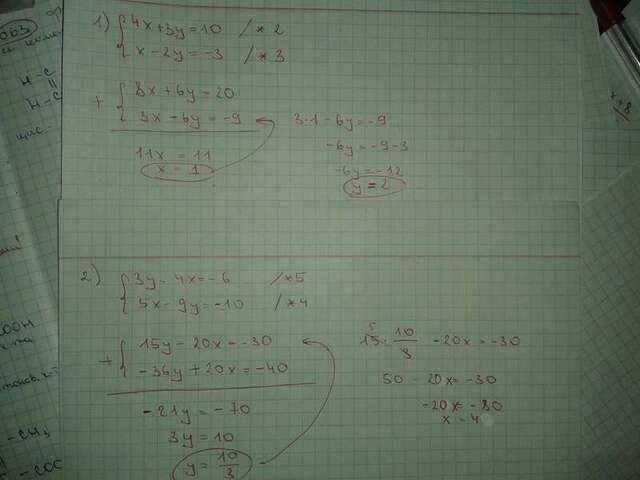 1) { 4x+3y=10 /*2
x-2y=-3 /*3
+ { 8x+6y=20
3x-6y=-9
11x=11
x=1
3·1-6y=-9
-6y=-9-3
-6y=-12
y=2
2) { 3y-4x=-6 /*5
5x-9y=-10 /*4
+ { 15y-20x=-30
-36y+20x=-40
-21y=-70
3y=10
y=10/3
15·10/3-20x=-30
50-20x=-30
-20x=-80
x=4
H-C
H-C
COOH
-CH₃
-COO